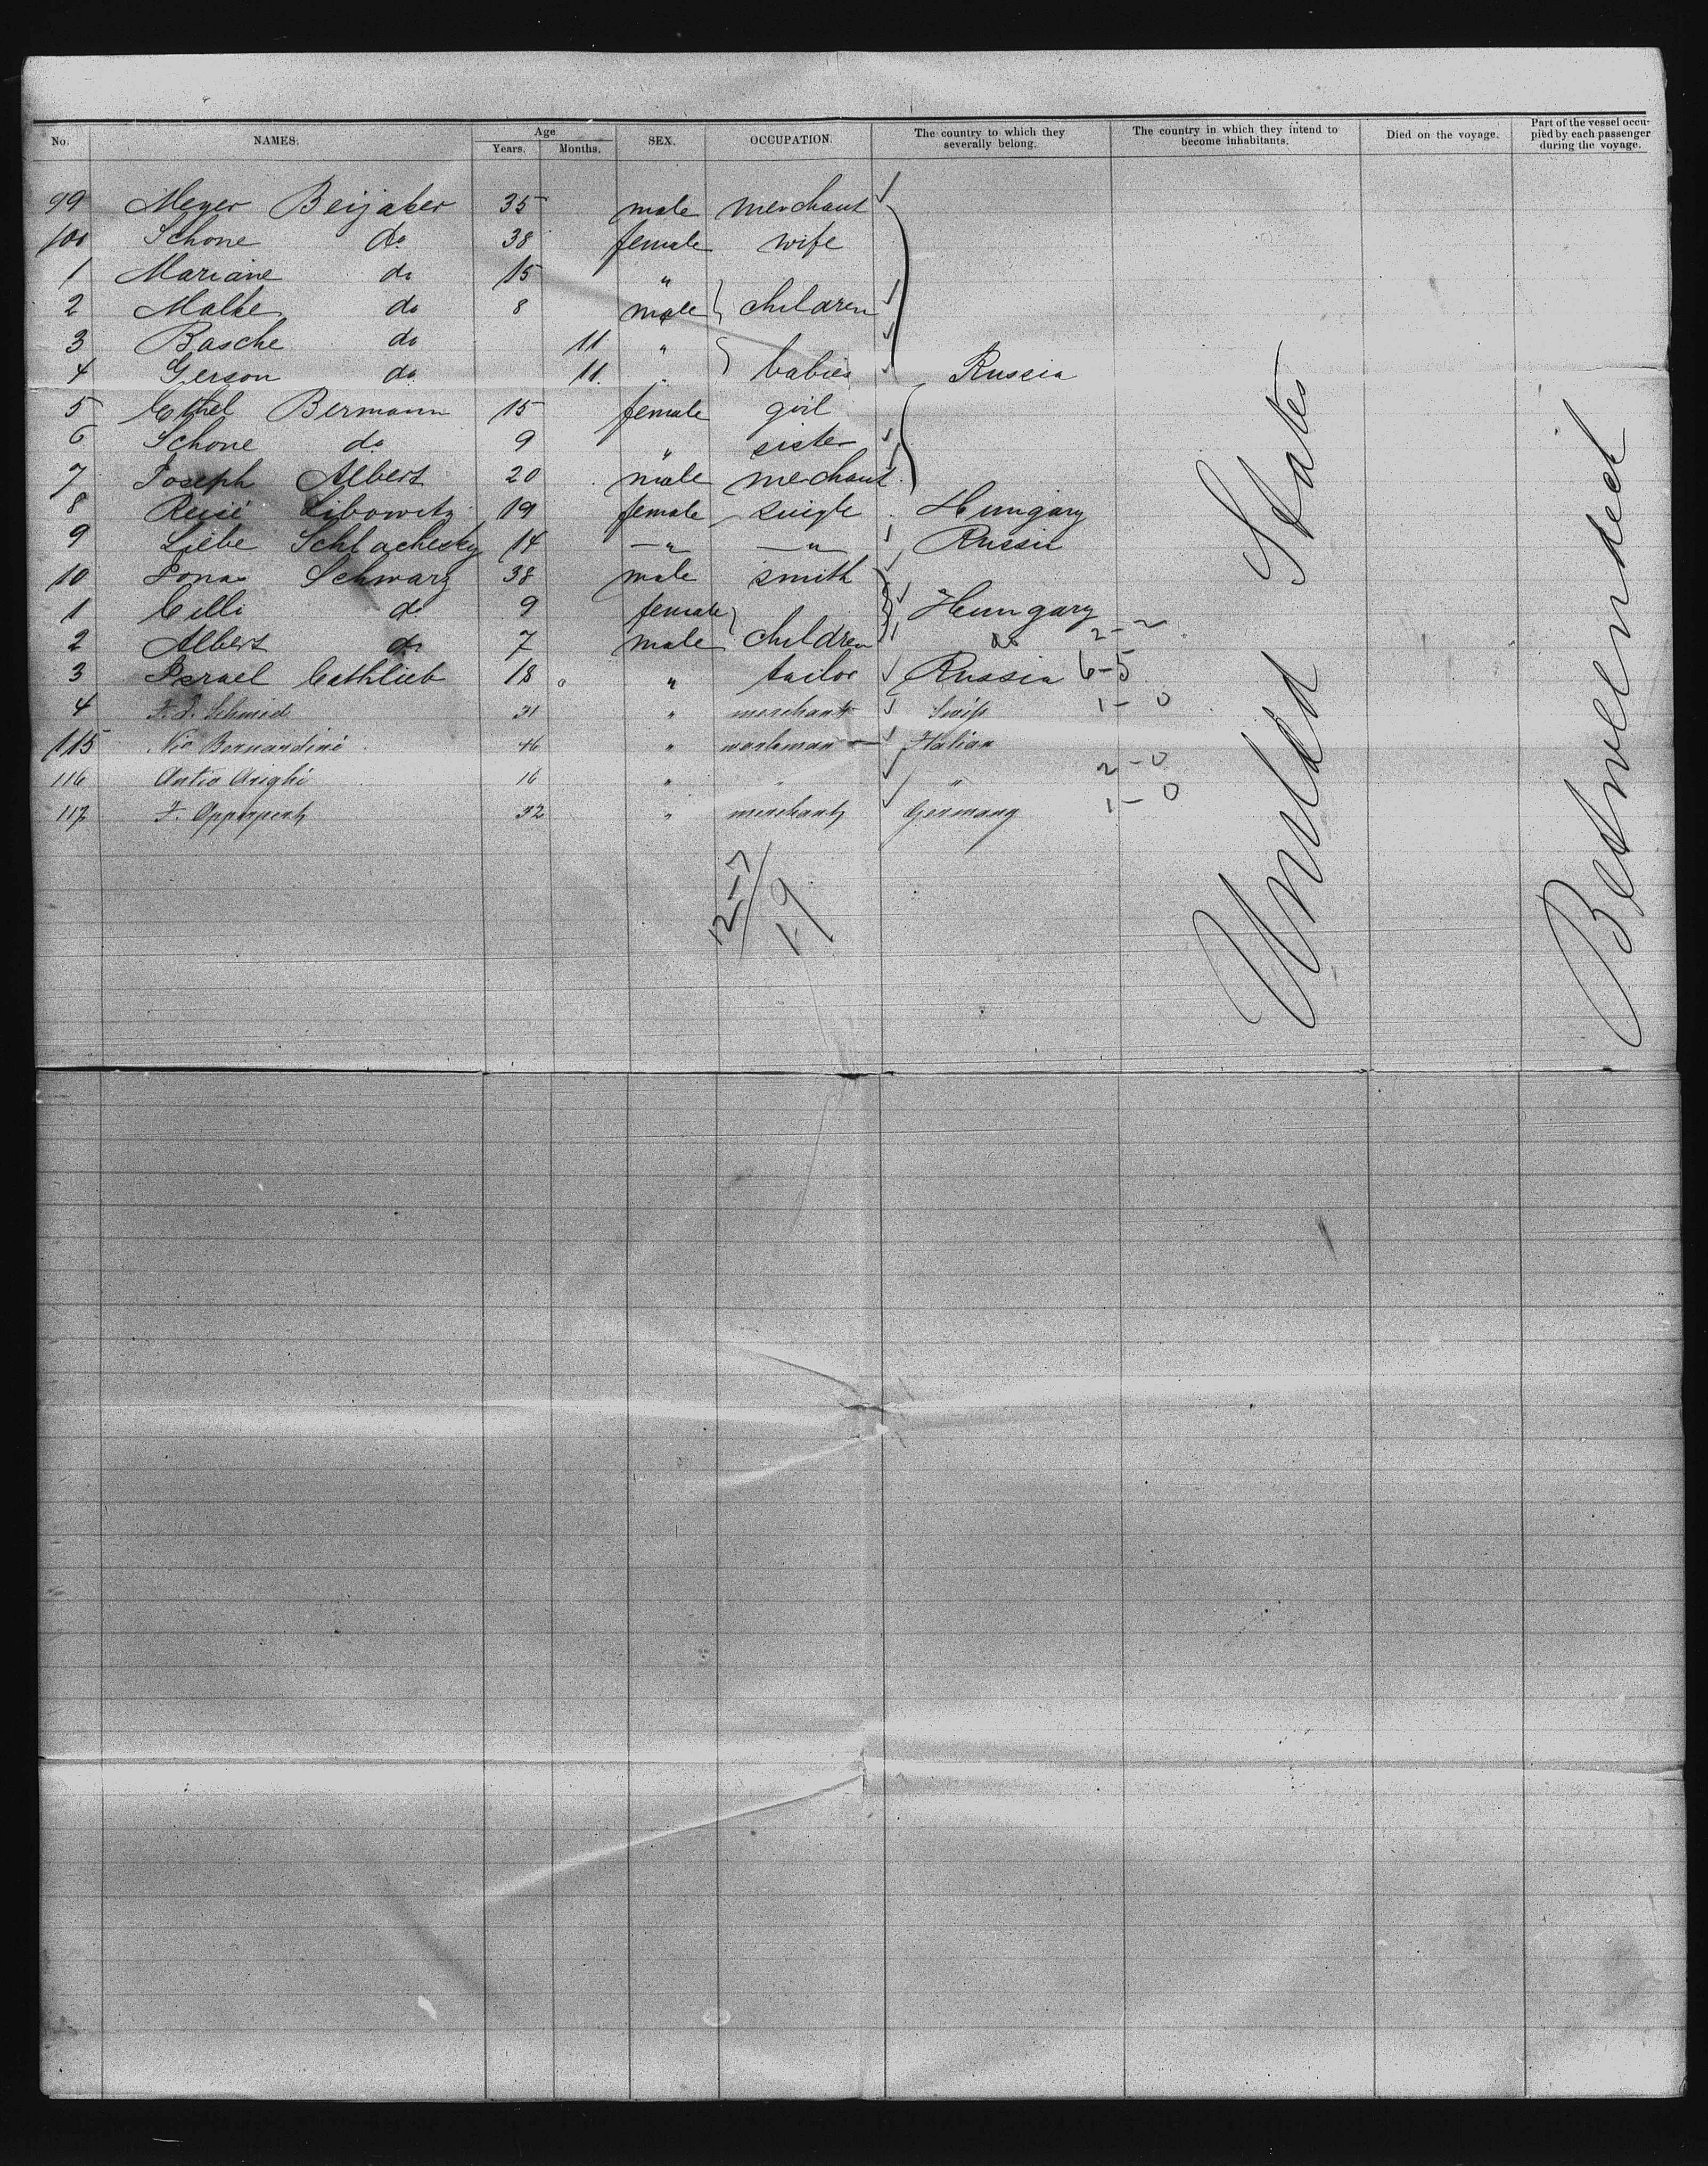 No. NAMES. Age Years. Months. SEX. OCCUPATION. The country to which they severally belong. The country in which they intend to become inhabitants. Died on the voyage. Part of the vessel occupied by each passenger during the voyage.
99 Meyer Beijaker 35 male merchant
100 Schone do 38 female wife
1 Mariane do 15 "
2 Malke do 8 male children
3 Basche do 11 "
4 Gerson do 11. " babies Russia
5 Ethel Bermann 15 female girl
6 Schone do 9 " sister
7 Joseph Albert 20 male merchant
8 Resi Libowitz 19 female single Hungary
9 Liebe Schlachesky 14 " " Russia
10 Jonas Schwarz 38 male smith
1 Cilli do 9 female Hungary
2 Albert do 7 male children do 2-2
3 Israel Cathlieb 18 " tailor Russia 6-5
4 F. J. Schmid 31 " merchant Swiss 1-0
115 Nic Bernardini 46 " workman Italian
116 Antio Arighi 16 " " " 2-0
117 F. 32 " merchant Germany 1-0
12-7
19
United States
Betweendeck